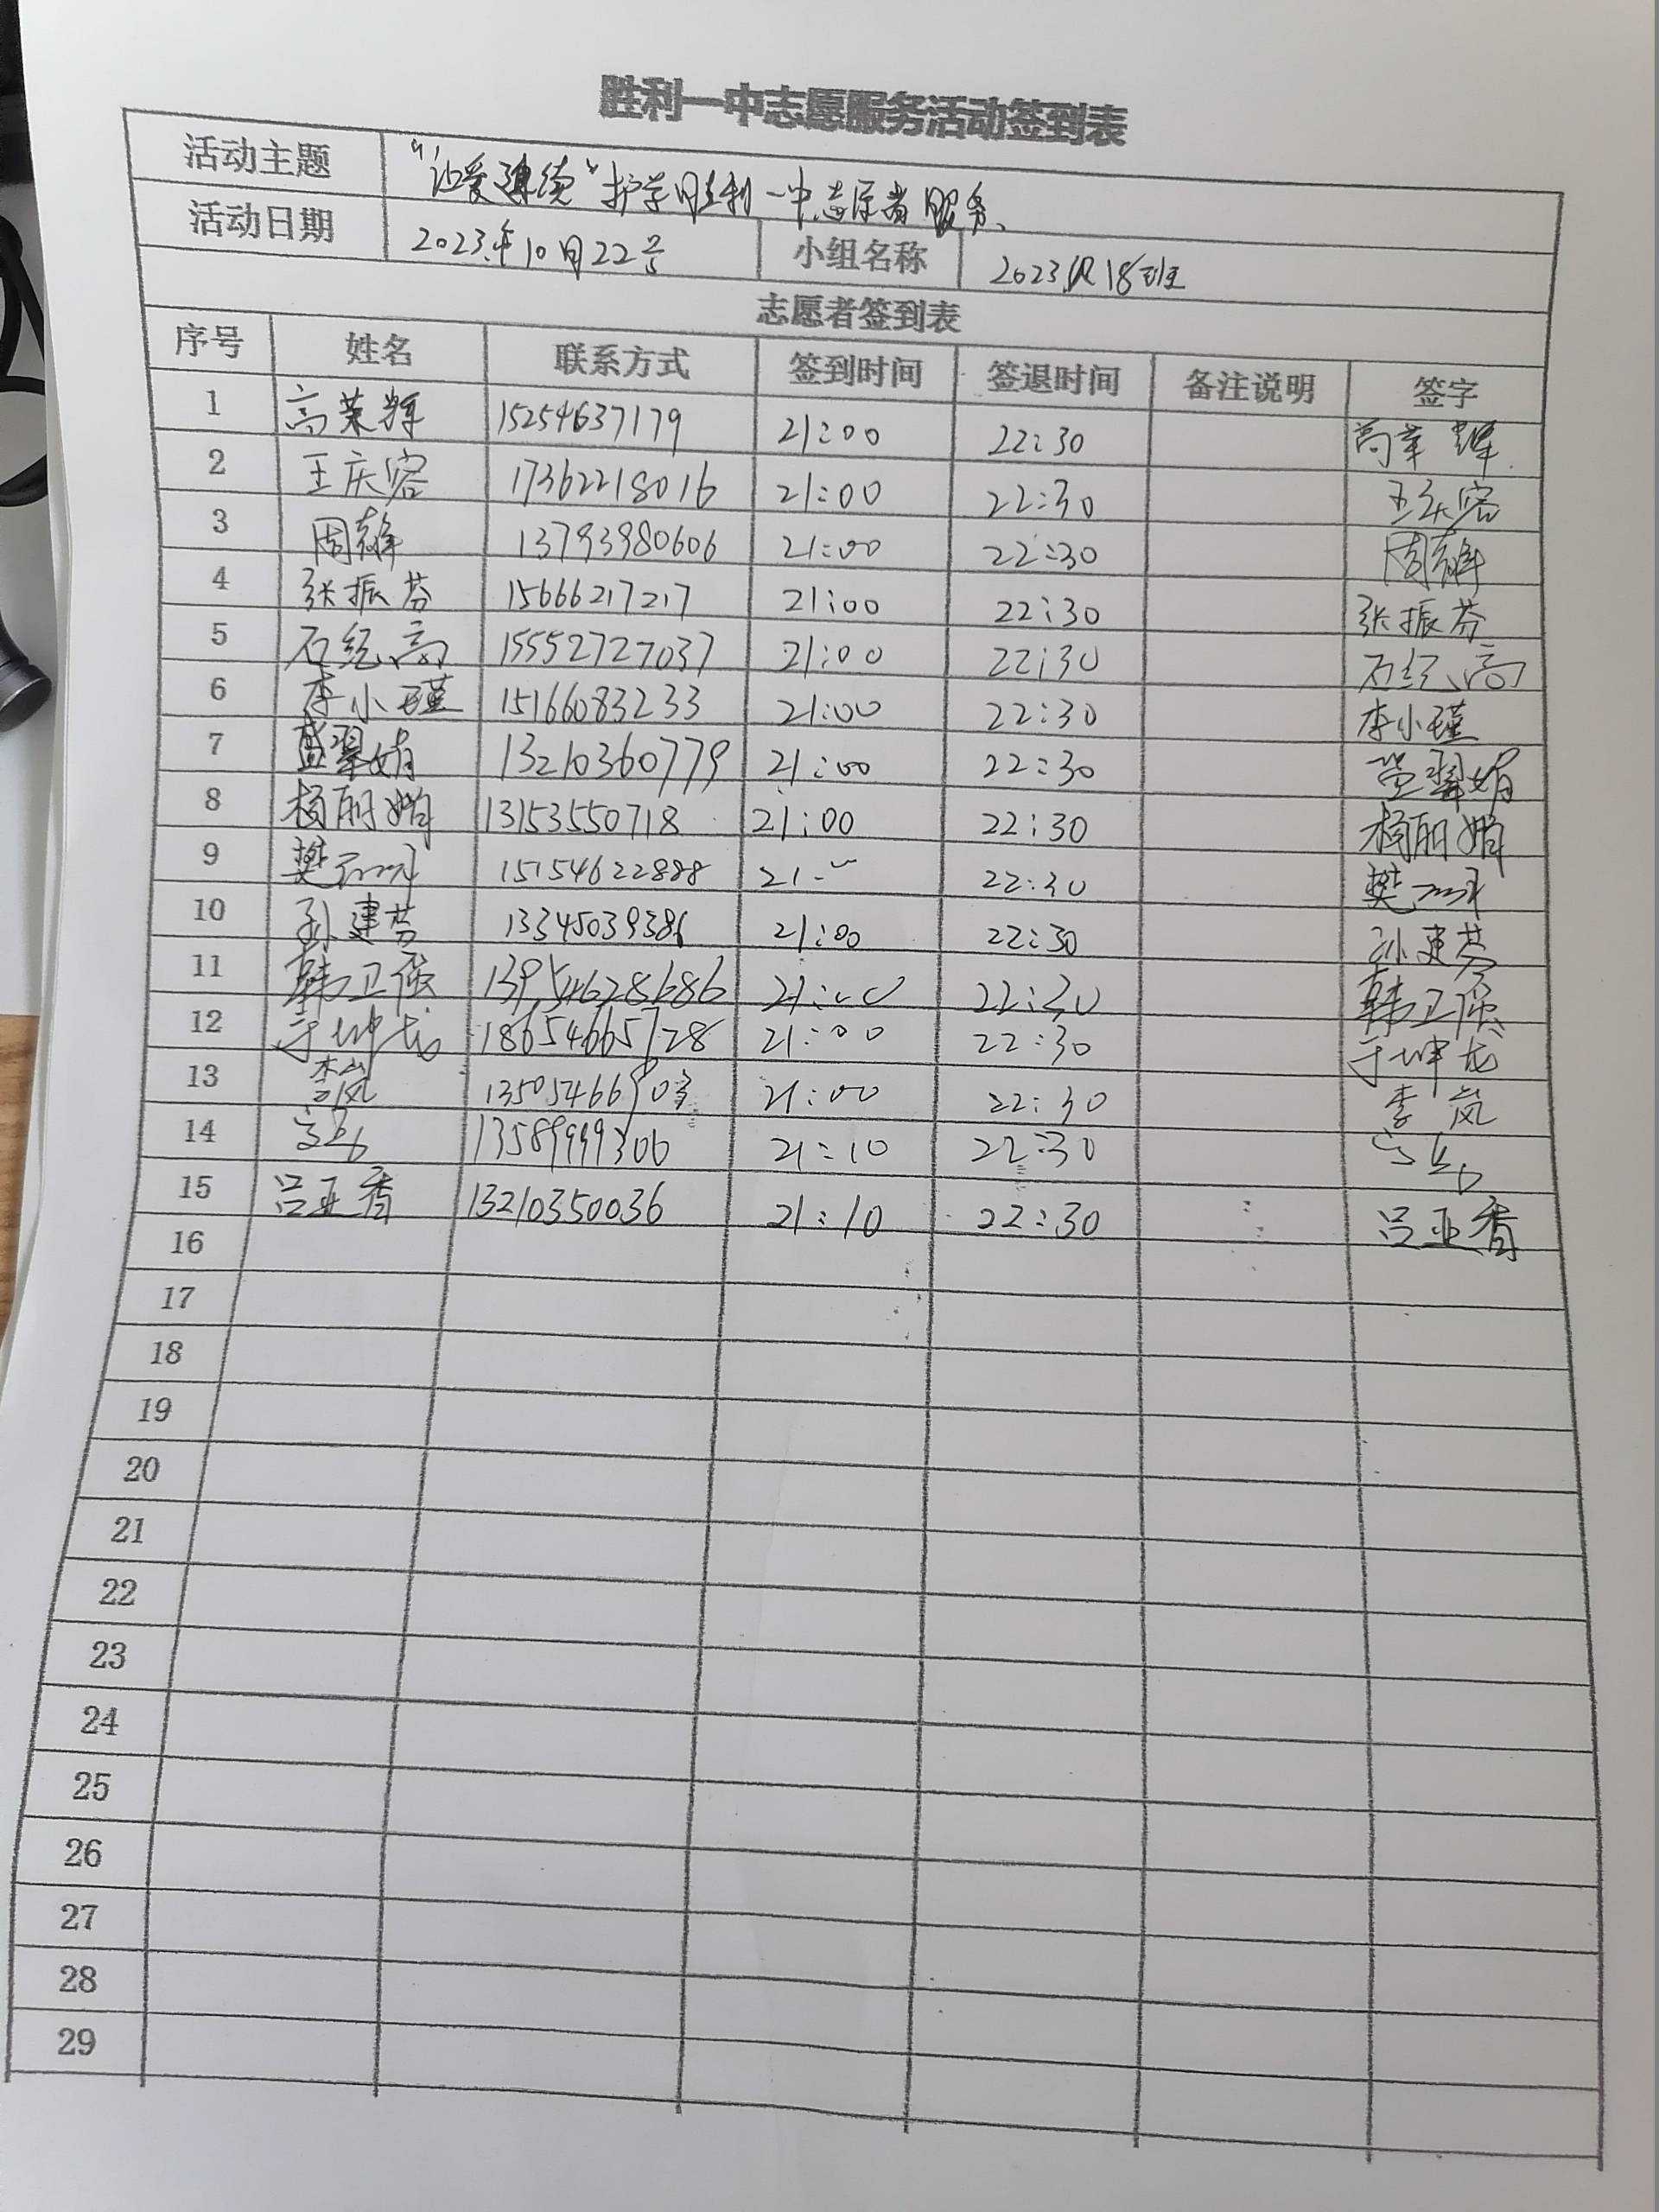 胜利一中志愿服务活动签到表
活动主题 "让爱延续"护学胜利一中志愿者服务、
活动日期 2023年10月22号 小组名称 2023级18班
志愿者签到表
序号 姓名 联系方式 签到时间 签退时间 备注说明 签字
1 高荣辉 15254637179 21:00 22:30 高荣辉
2 王庆容 17362218016 21:00 22:30 王庆容
3 周 13793980606 21:00 22:30 周
4 张振芬 15666217217 21:00 22:30 张振芬
5 石纪高 15552727037 21:00 22:30 石纪高
6 李小瑾 15166083233 21:00 22:30 李小瑾
7 翠娟 13210360779 21:00 22:30 翠娟
8 杨丽娟 13153550718 21:00 22:30 杨丽娟
9 樊 15154622888 21:00 22:30 樊
10 孙建芳 13345039386 21:00 22:30 孙建芳
11 韩卫强 13954628686 21:00 22:30 韩卫强
12 于坤龙 18654665728 21:00 22:30 于坤龙
13 李岚 21:00 22:30 李岚
14 13589999306 21:10 22:30
15 吕亚香 13210350036 21:10 22:30 吕亚香
16
17
18
19
20
21
22
23
24
25
26
27
28
29